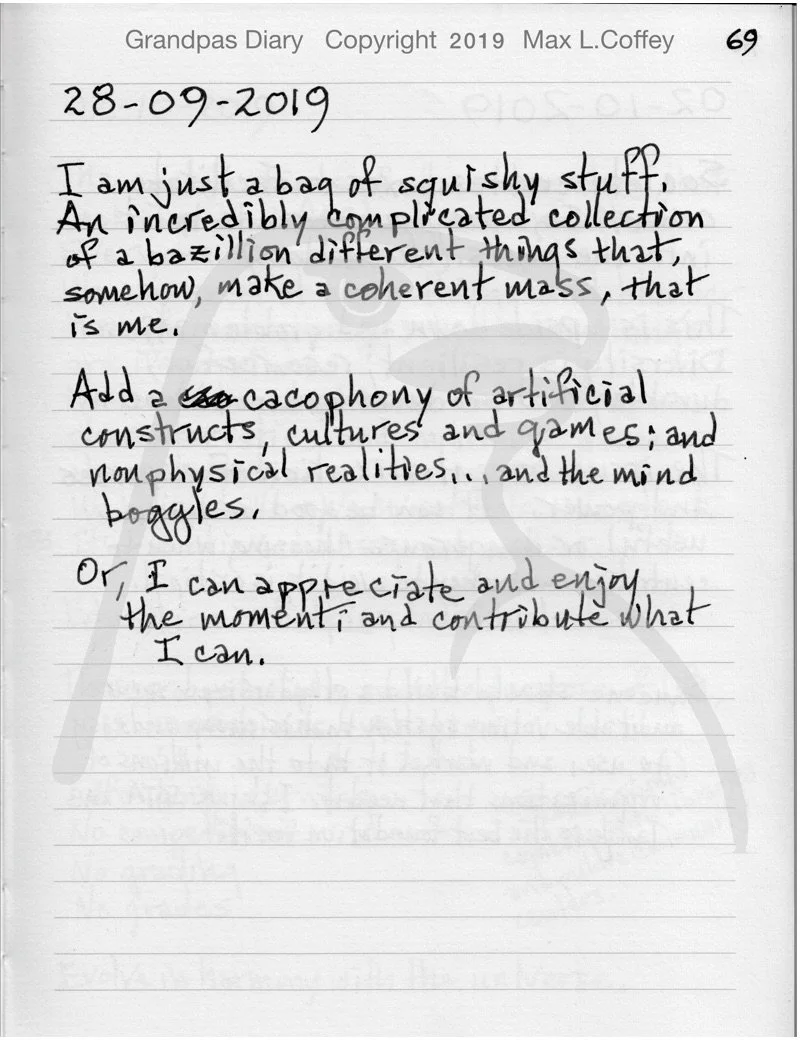 Grandpas Diary Copyright 2019 Max L.Coffey 69
28-09-2019
I am just a bag of squishy stuff.
An incredibly complicated collection
of a bazillion different things that,
somehow, make a coherent mass, that
is me.
Add a cacophony of artificial
constructs, cultures and games; and
nonphysical realities... and the mind
boggles.
Or, I can appreciate and enjoy
the moment; and contribute what
I can.